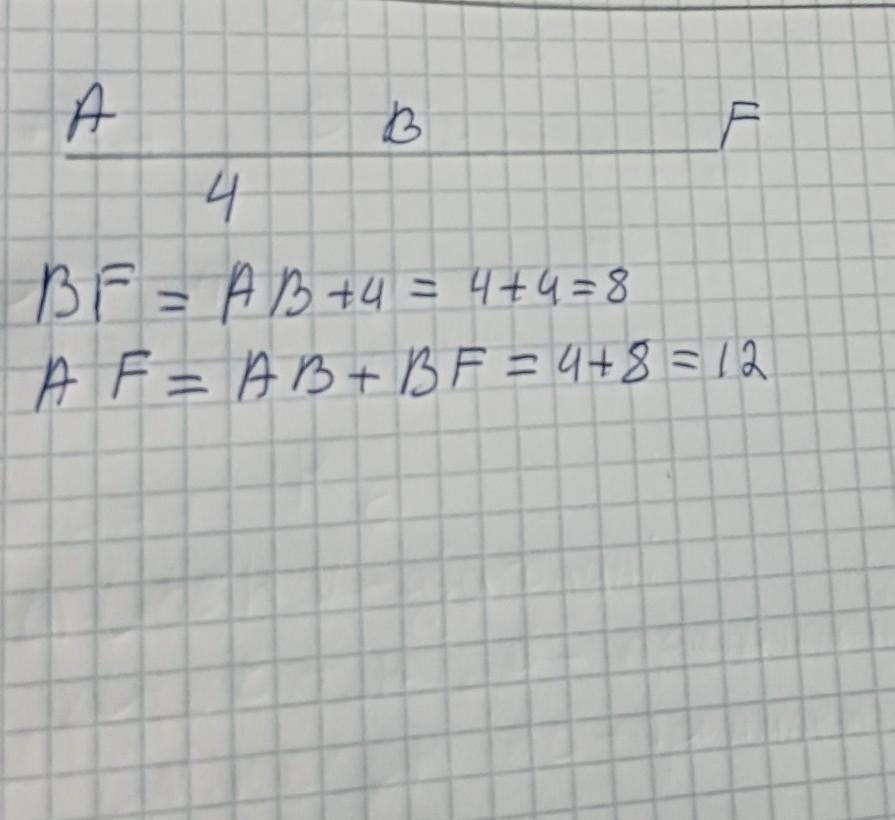 A B F
4
BF = AB+4 = 4+4=8
AF = AB + BF = 4+8 = 12